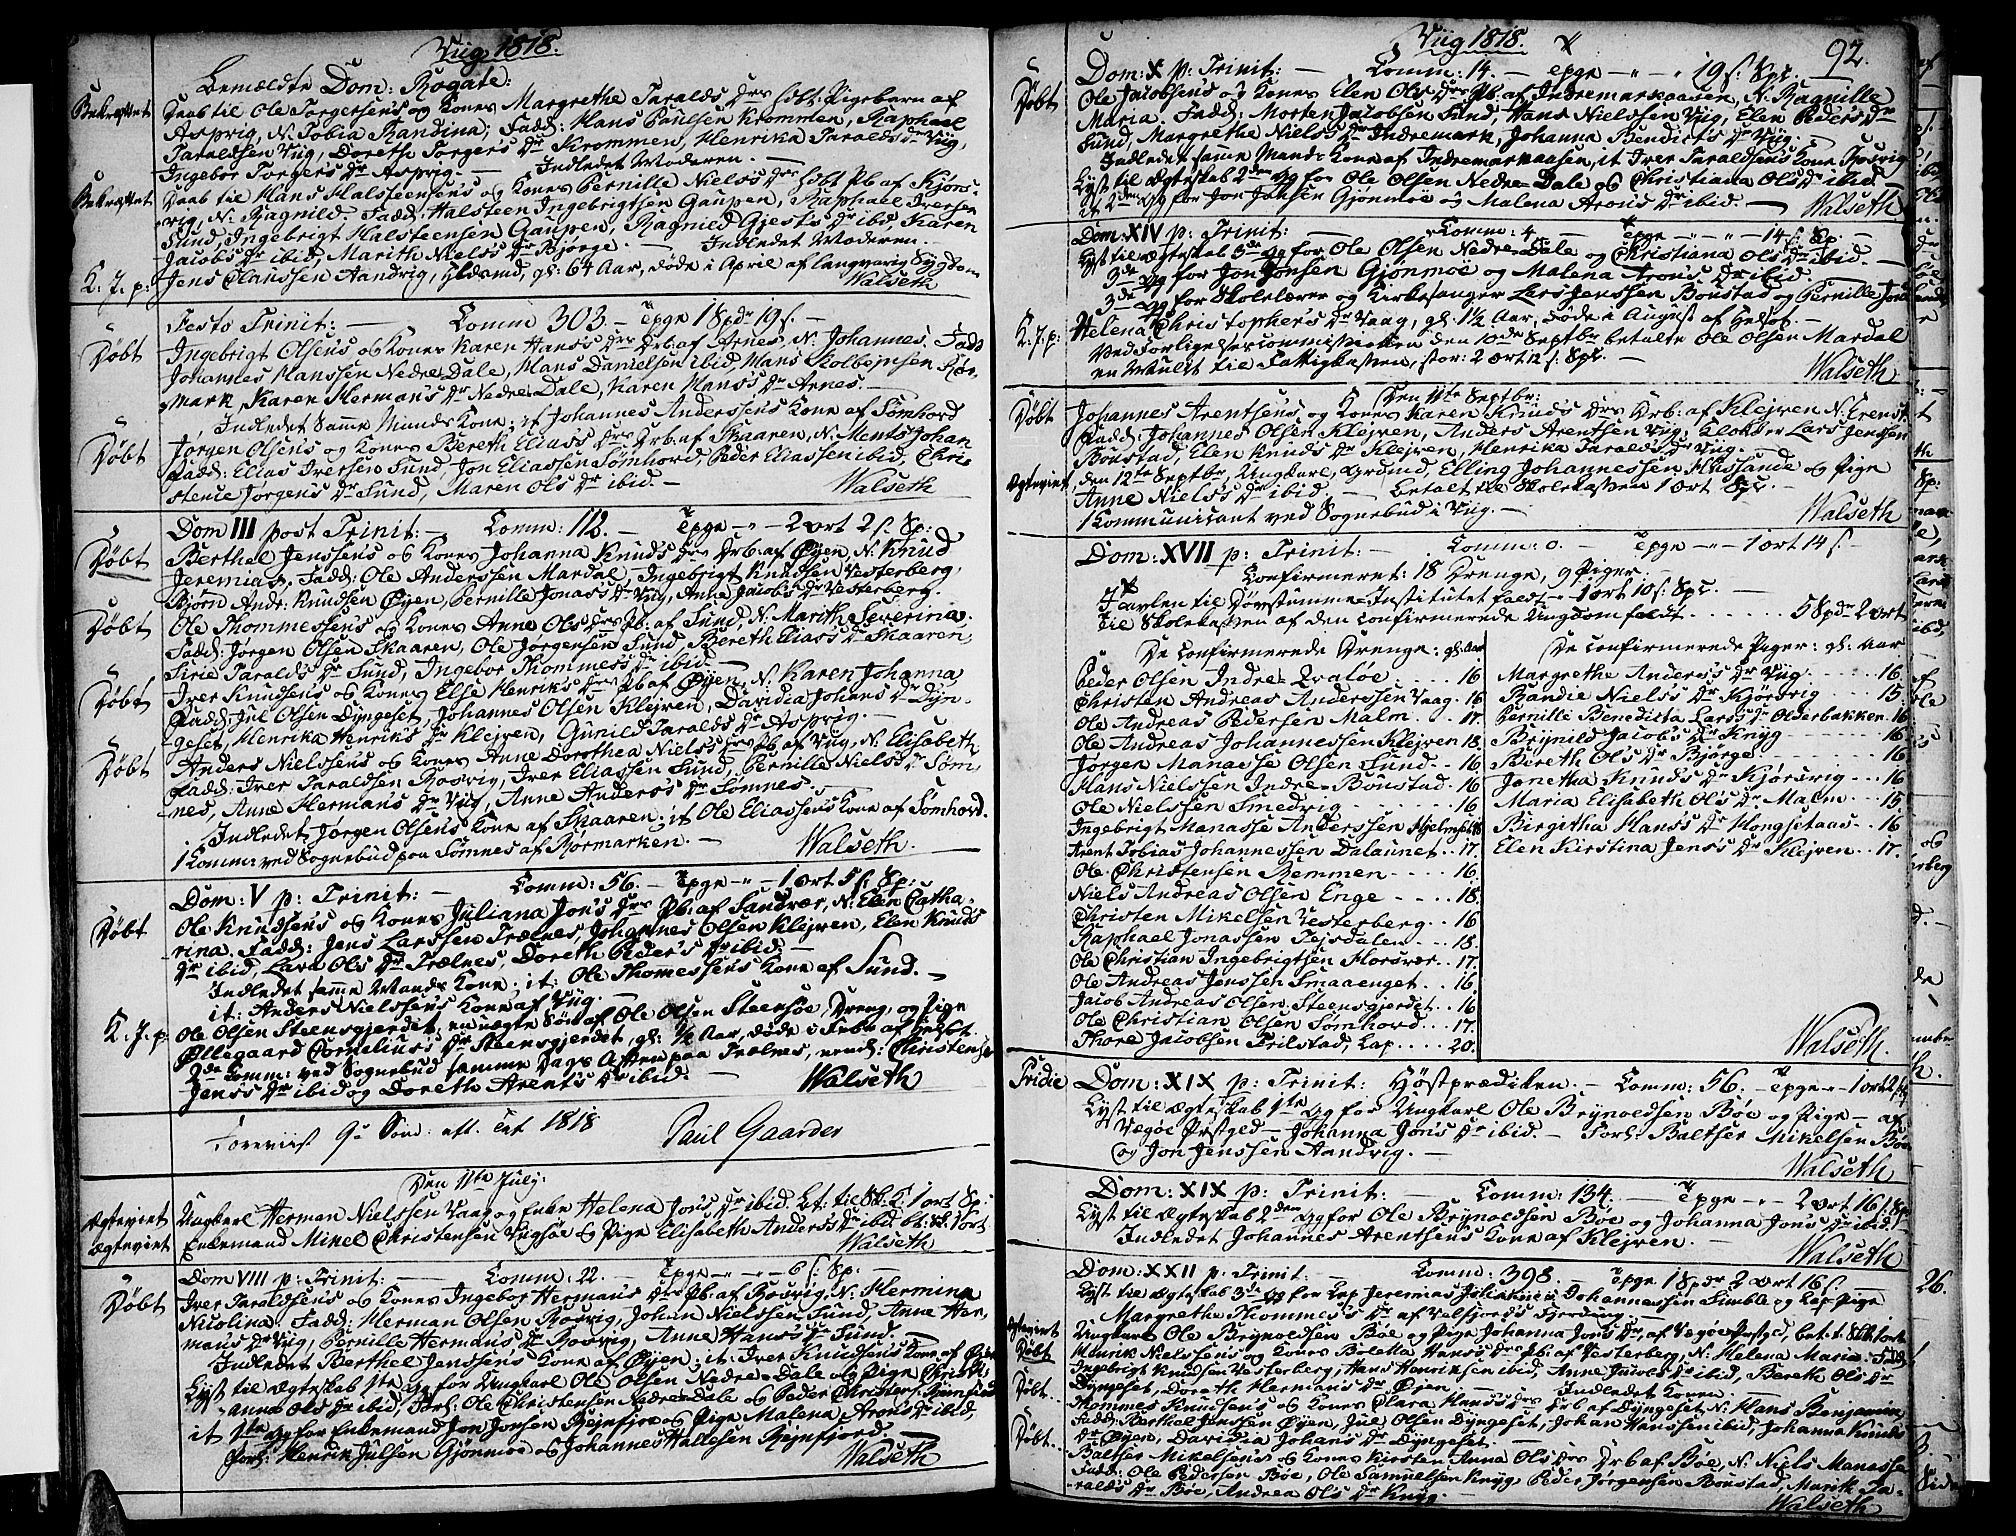 Viig 1818.
Bemældte Dom: Rogate:
Bekræftet Daab til Ole Torgersens og Kones Margrethe Taralds Drs hdbt: Pigebarn af
Aspvig, N. Tobia Bandina; Fadd: Hans Poulsen Krommen, Raphael
Taraldsen Viig, Doreth Torgers Dr Krommen, Henrika Taralds Dr Viig,
Ingebor Torgers Dr Aspvig. — Indledet Moderen. —
Bekræftet Daab til Hans Halsteensens og Kones Pernille Niels's Drs hdbt Pb. af Kjørs-
vig, N. Ragnild. Fadd: Halsteen Ingebrigtsen Gaupen, Raphael Iversen
Sund, Ingebrigt Halsteensen Gaupen, Ragnild Gjests Dr ibid, Karen
Jacobs Dr ibid, Marith Niels's Dr Bjørge. — Indledet Moderen. —
K. J. p: Jens Clausen Aandvig, Huusmd, gl: 64 Aar, døde i April af langvarig Sygdom
Walseth
Festo Trinit: — Comm 303. — Tpge 1 Spdr 19 s. —
Døbt Ingebrigt Olsens og Kones Karen Hans's Drs Drb. af Arnes, N. Johannes. Fadd
Johannes Hanssen Nedre-Dale, Hans Danielsen ibid, Hans Kolbejnsen Rør-
mark, Karen Hermans Dr Nedre-Dale, Karen Hans's Dr Arnes. —
Indledet Samme Mands Kone; it Johannes Anderssens Kone af Sømhord
Døbt Jørgen Olsens og Kones Bereth Elias's Drs Drb. af Skaaren, N. Ments Johan
Fadd: Elias Iversen Sund, Jon Eliassen Sømhord, Peder Eliassen ibid, Chri-
stence Jørgens Dr Sund, Maren Ols Dr ibid. — Walseth
Dom III post Trinit: — Comm: 112. — Tpge — 2 ort 2 s. Sp:
Døbt Berthel Jenssens og Kones Johanna Knuds Drs Drb: af Øyen, N. Knud
Jeremias. Fadd: Ole Anderssen Mardal, Ingebrigt Knudsen Vesterberg,
Bjørn Andr: Knudsen Øyen, Pernille Jonas's Dr Viig, Anne Jacobs Dr Vesterberg.
Døbt Ole Thommessens og Kones Anne Ols Drs Pb: af Sund, N. Marith Severina.
Fadd: Jørgen Olsen Skaaren, Ole Jørgensen Sund, Bereth Elias's Dr Skaaren,
Sirie Taralds Dr Sund, Ingebor Thommes's Dr ibid. —
Døbt Iver Knudsens og Kones Else Henriks Drs Pb af Øyen, N. Karen Johanna
Fadd: Jul Olsen Dyngeset, Johannes Olsen Klejven, Davidia Johans Dr Dyn-
geset, Henrika Henriks Dr Klejven, Gunild Taralds Dr Aspvig. —
Døbt Anders Nielssens og Kones Anne Dorothea Niels's Drs Pb. af Viig, N. Elisabeth
Fadd: Iver Taraldsen Rosvig, Iver Eliassen Sund, Pernille Niels's Dr Søm-
nes, Anne Hermans Dr Viig, Anne Anders's Dr Sømnes. —
Indledet Jørgen Olsens Kone af Skaaren; it Ole Eliassens Kone af Sømhord.
1 Komm: ved Sognebud paa Sømnes af Rørmarken. — Walseth.
Dom: V p: Trinit: — Comm: 56. — Tpge — 1 ort 5 s. Sp:
Døbt Ole Knudsens og Kones Juliana Jons Drs Pb: af Sandvær, N. Elen Catha-
rina. Fadd: Jens Larssen Trælnes, Johannes Olsen Klejven, Elen Knuds
Dr ibid, Lava Ols Dr Trælnes, Doreth Peders Dr ibid: —
Indledet samme Mands Kone; it: Ole Thomessens Kone af Sund. —
it: Anders Nielsens Kone af Viig. —
K. J. p: Ole Olsen Steensgjerdet; en uægte Søn af Ole Olsen Steensøe, Dreng, og Pige
Ellegaard Cornelius's Dr Steensgjerdet, gl: ½ Aar, døde i Febr af
2de Comm: ved Sognebud samme Dags Aften paa Trælnes, neml: Christense
Jens's Dr ibid og Doreth Arents Dr ibid. — Walseth
Foreviist 9e Sønd: eft. Tret 1818 Paul Gaarder
Den 11te July:
Ægteviet Ungkarl Herman Nielssen Vaag og Enke Helena Jons Dr ibid. bt: til Sk:K: 1 ort Sp:
Ægteviet Enkemand Mikel Christensen Vegsøe og Pige Elisabeth Anders's Dr ibid. bt: Sk: 1 ort
Walseth
Dom VIII p: Trinit: — Comm: 22. Tpge — 6 s. Sp: —
Døbt Iver Taraldsens og Kones Ingebor Hermans Drs Pb. af Rosvig, N. Hermina
Nicolina. Fadd: Herman Olsen Rosvig, Johan Nielssen Sund, Anne Her-
mans Dr Viig, Pernille Hermans Dr Rosvig, Anne Hans's Dr Sund. —
Indledet Berthel Jenssens Kone af Øyen; it: Iver Knudsens Kone af Øyen
Lyst til Ægteskab 1te Gg for Ungkarl Ole Olsen Nedre-Dale og Pige Christi-
anna Ols Dr ibid, Forl: Ole Christensen Nedre-Dale og Peder Christens:
it 1te Gg for Enkemand Jon Jonsen Rejnfjor og Pige Malena Arons Dr ibid,
Forl: Henrik Julsen Gjønmoe og Johannes Hallesen Rejnfjord. —
Walseth
Viig 1818. 92.
Dom: X p: Trinit: — Comm: 14. — Tpge — 19 s. Spc. —
Døbt Ole Jacobsens og Kones Elen Ols Drs Pb. af Indremarkaasen, N. Ragnille
Maria. Fadd: Morten Jacobsen Sund, Hans Nielssen Viig, Elen Peders Dr
Sund, Margrethe Niels's Dr Indremark, Johanna Bendicts Dr Viig. —
Indledet samme Mands Kone af Indremarkaasen, it Iver Taraldsens Kone Rosvig
Lyst til Ægteskab 2den Gg for Ole Olsen Nedre-Dale og Christiana Ols Dr ibid.
it 2den Gg for Jon Johsen Gjønmoe og Malena Arons Dr ibid. — Walseth
Dom: XIV p: Trinit: — Comm: 4. — Tpge — 14 s. Sp. —
Lyst til Ægteskab 3de Gg for Ole Olsen Nedre-Dale og Christiana Ols Dr ibid. —
3de Gg for Jon Jonsen Gjønmoe og Malena Arons Dr ibid
3de Gg for Skolelærer og Kirkesanger Lars Jenssen Boustad og Pernille
K. J. p: Helena Christophers Dr Vaag, gl: 1½ Aar, døde i August af Helsot. —
Ved Forligelsescommissionen den 10de Septbr betalte Ole Olsen Mardal
en Mulct til Fattigkassen, stor: 2 ort 12 s. Spc. — Walseth
Den 11te Septbr:
Døbt Johannes Arentsens og Kones Karen Knuds Drs Drb: af Klejven N. Arent.
Fadd: Johannes Olsen Klejven, Anders Arentsen Viig, Klokker Lars Jenssen
Boustad, Elen Knuds Dr Klejven, Henrika Taralds Dr Viig. —
Ægteviet den 12te Septbr, Ungkarl, Elling Johannessen Flussande og Pige
Anne Niels's Dr ibid. — betalt til Skolekassen 1 Ort Spc.
1 Communicant ved Sognebud i Viig. — Walseth
Dom: XVII p: Trinit: — Comm: 0. Tpge — 1 ort 14 s. —
Confirmeret: 18 Drenge, 9 Piger. —
I Tavlen til Døvstumme-Institutet faldt — 1 ort 10 s. Spc. —
Til Skolekassen af den confirmerede Ungdom faldt . . . . . 5 Spdr 2 ort
De Confirmerede Drenge: gl: Aar
Peder Olsen Indre-Qvaløe . . . 16
Christen Andreas Anderssen Vaag . 16
Ole Andreas Pedersen Malm . . 17.
Ole Andreas Johannessen Klejven 18.
Jørgen Manasse Olsen Sund . . 16
Hans Nielssen Indre-Boustad . 16
Ole Nielssen Smedvig . . . 16
Ingebrigt Manasse Anderssen Hjelmset 18
Arent Tobias Johannessen Dalaunet . . 17.
Ole Christensen Remmen . . . 16.
Niels Andreas Olsen Enge . . . 18.
Christen Mikelsen Vesterberg . . 16
Raphael Jonassen Tejsdalen . . . 18.
Ole Christian Ingebrigtsen Florsvær . . 17.
Ole Andreas Jenssen Smaaenget . . 16.
Jacob Andreas Olsen Steensgjerdet . . 16
Ole Christian Olsen Sømhord . . . 17.
Thore Jacobsen Trilstad, Lap . . . . 20.
De Confirmerede Piger: gl: Aar
Margrethe Anders's Dr Viig . . . . 16.
Bandie Niels's Dr Kjørsvig . . . 15.
Pernille Benedicta Lars's Dr Olderbakken . 16
Brynild Jacobs Dr Knyg . . . 16
Bereth Ols Dr Bjørge . . . 16
Jonetha Knuds Dr Kjørsvig . . . 16
Maria Elisabeth Ols Dr Malm . . 15.
Birgitha Hans's Dr Hongsetaas . . 16
Elen Kirstina Jens's Dr Klejven . . 17.
Walseth.
Fridie Dom: XIX p: Trinit: Høstprædiken. — Comm: 56. — Tpge — 1 ort
Lyst til Ægteskab 1te Gg for Ungkarl Ole Brynoldsen Bøe og Pige — af
Vægøe Præstged — Johanna Jons Dr ibid. — Forl: Baltser Mikelsen Bøe
og Jon Jenssen Aandvig. — Walseth
Dom: XIX p: Trinit: — Comm: 134. — Tpge — 2 Ort 16 s. Sp.
Lyst til Ægteskab 2den Gg for Ole Brynoldsen Bøe og Johanna Jons Dr ibid. —
Indledet Johannes Arentsens Kone af Klejven. — Walseth
Dom: XXII p: Trinit: — Comm: 398. — Tpge 1 Spdr 2 Ort 16 s. —
Lyst til Ægteskab 3de Gg for Lap Jeremias Johannessen Simble og Lap-Pige
Margrethe Thommes's Dr af Velfjords Fjerding. —
Ægteviet Ungkarl Ole Brynoldsen Bøe og Pige Johanna Jons Dr, af Vægøe Prstgd, bet. t. Sk 1 ort
Døbt Henrik Nielssens og Kones Boletta Hans's Drs Pb. af Vesterberg, N. Helena Maria. Fadd
Ingebrigt Knudsen Vesterberg, Hans Henriksen ibid, Anne Jacobs Dr ibid, Bereth Ols Dr
Dyngeset, Doreth Hermans Dr Øyen — Indledet Konen. —
Døbt. Thommes Knudsens og Kones Clara Hans's Drs Drb af Dyngeset N. Hans Benjamin
Fadd: Berthel Jenssen Øyen, Jul Olsen Dyngeset, Johan Hanssen ibid, Johanna Knuds
Dr Øyen, Davidia Johans Dr Dyngeset. —
Døbt. Baltser Mikelsens og Kones Kirsten Anna Ols Drs Drb af Bøe, N. Niels Manasse
Fadd: Ole Pedersen Bøe, Ole Samuelsen Knyg, Peder Jørgensen Boustad, Marik Ta-
ralds Dr Bøe, Andrea Ols Dr Knyg. —
Walseth